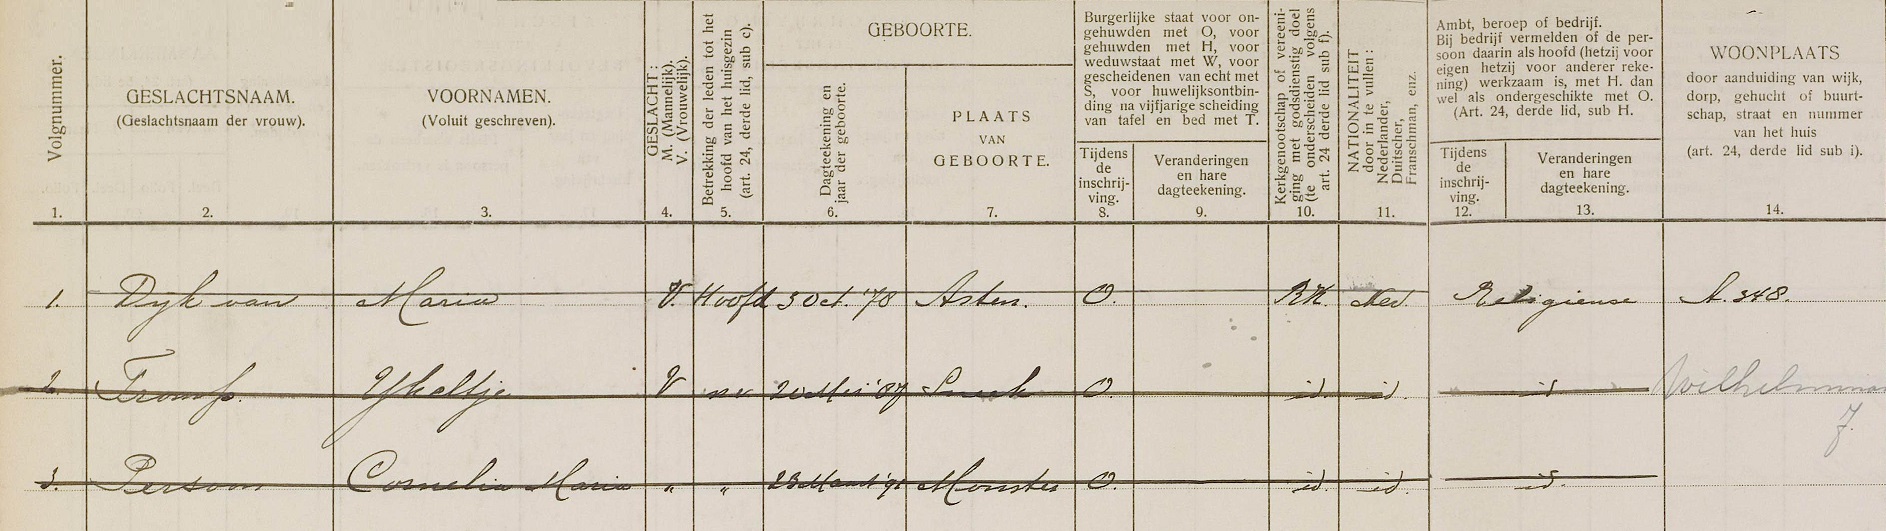 Volgnummer.
1.
GESLACHTSNAAM.
(Geslachtsnaam der vrouw).
2.
VOORNAMEN.
(Voluit geschreven).
3.
GESLACHT:
M. (Mannelijk).
V. (Vrouwelijk).
4.
Betrekking der leden tot het
hoofd van het huisgezin
(art. 24, derde lid, sub c).
5.
GEBOORTE.
Dagteekening en
jaar der geboorte.
6.
PLAATS
VAN
GEBOORTE.
7.
Burgerlijke staat voor on-
gehuwden met O, voor
gehuwden met H, voor
weduwstaat met W, voor
gescheidenen van echt met
S, voor huwelijksontbin-
ding na vijfjarige scheiding
van tafel en bed met T.
Tijdens
de
inschrij-
ving.
8.
Veranderingen
en hare
dagteekening.
9.
Kerkgenootschap of vereeni-
ging met godsdienstig doel
(te onderscheiden volgens
art. 24 derde lid sub f).
10.
NATIONALITEIT
door in te vullen:
Nederlander,
Duitscher,
Franschman, enz.
11.
Ambt, beroep of bedrijf.
Bij bedrijf vermelden of de per-
soon daarin als hoofd (hetzij voor
eigen hetzij voor anderer reke-
ning) werkzaam is, met H. dan
wel als ondergeschikte met O.
(Art. 24, derde lid, sub H.
Tijdens
de
inschrij-
ving.
12.
Veranderingen
en hare
dagteekening.
13.
WOONPLAATS
door aanduiding van wijk,
dorp, gehucht of buurt-
schap, straat en nummer
van het huis
(art. 24, derde lid sub i).
14.
1. Dyk van Maria V. Hoofd 3 Oct. '78 Asten. O. RK. Ned. Religieuse A. 348.
2. Tromp. Ykeltje V nv Mei '87 Sneek O. id. id. id Wilhelmina
7.
3. Persoon Cornelia Maria " " 23 Maart '91 Monster O. id. id. id.